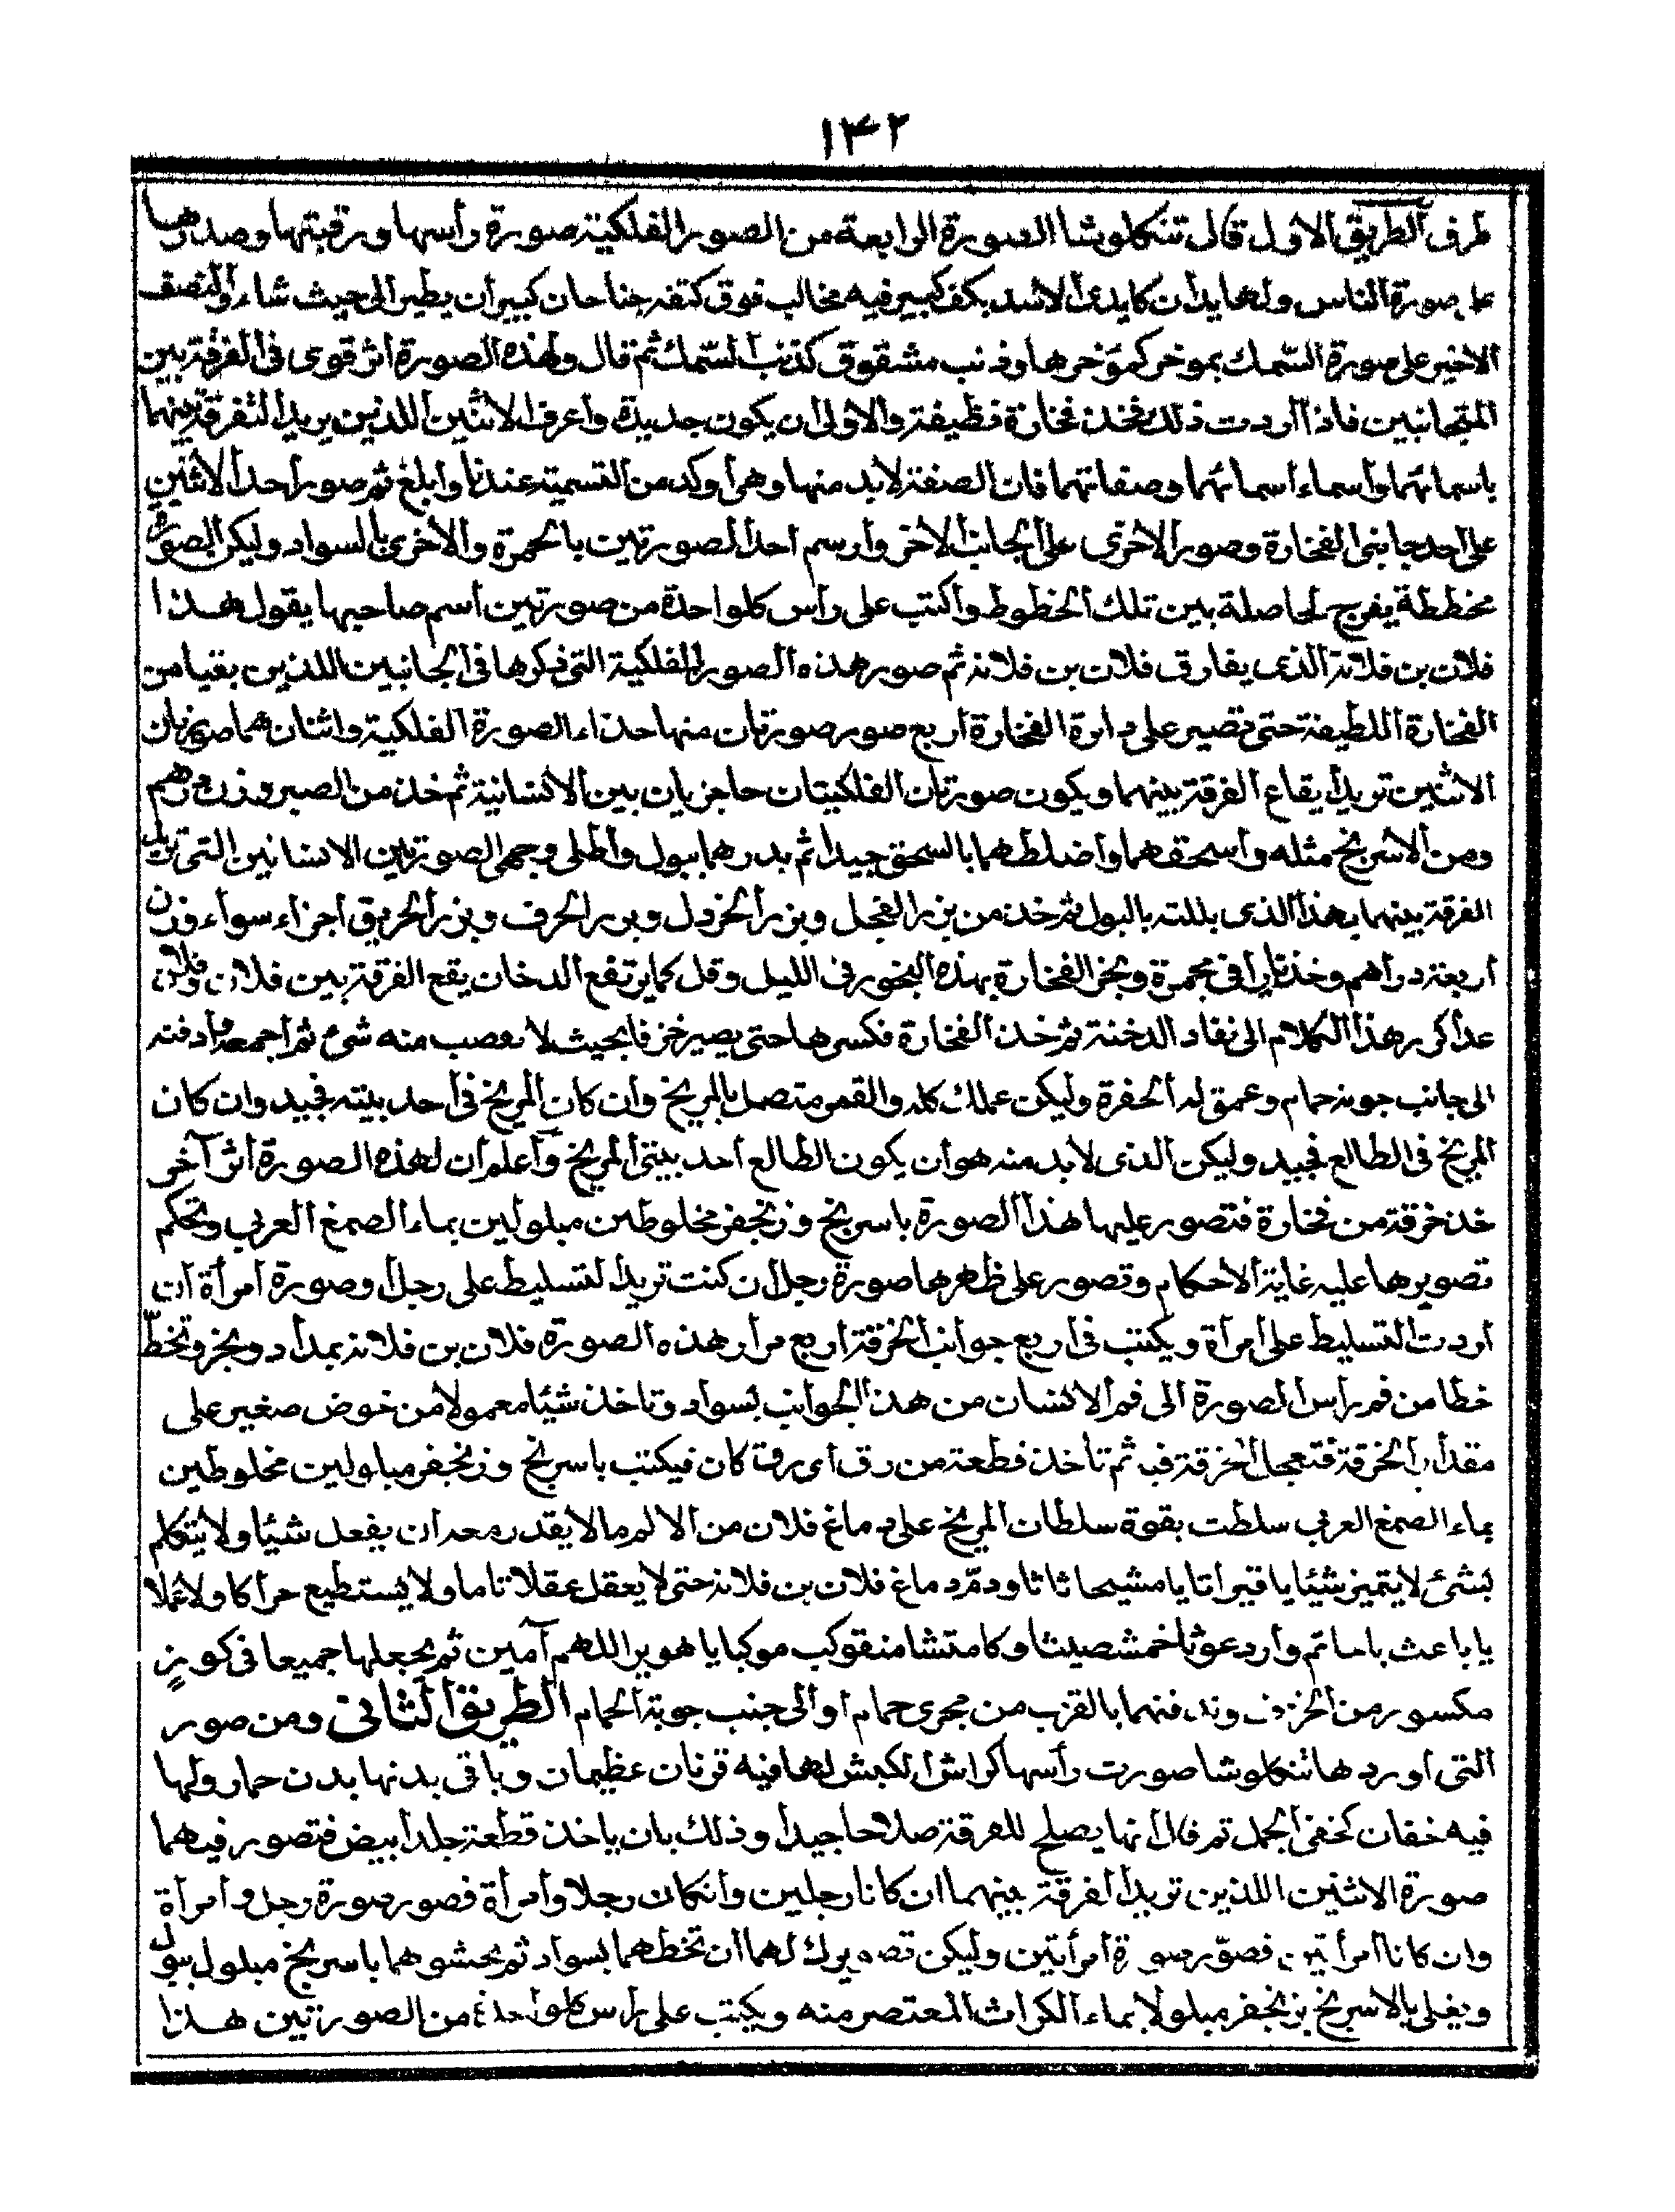 ١٣٢
طرف الطريق الاول قال تنكلوشا الصورة الرابعة من الصور الفلكية صورة رأسها ورقبتها وصدرها
على صورة الناس ولها يدان كايدى الاسد بكف كبير فيه مخالب فوق كتفه جناحان كبيران يطير الى حيث شاء والنصف
الاخير على صورة السّمك بموخر كمؤخرها وذنب مشقوق كذنب السّمك ثم قال ولهذه الصورة اثر قوى فى الفرقة بين
المتجانبين فاذا اردت ذلك فخذ فخارة نظيفة والاولى ان يكون جديدة واعرف الاثنين اللذين يريد التفرقة بينهما
باسمائهما واسماء اسمائهما وصفاتهما فان الصفة لابد منها وهى أوكد من التسمية عندنا وابلغ ثم صور احد الاثنين
على احد جانبى الفخارة وصور الاخرى على الجانب الاخر وارسم احد الصورتين بالحمرة والاخرى بالسواد وليكن الصورة
مخططة يفرج لحاصلة بين تلك الخطوط واكتب على رأس كلواحدة من صورتين اسم صاحبها يقول هذا
فلان بن فلانة الذى يفارق فلان بن فلانة ثم صور هذه الصور الفلكية التى ذكرها فى الجانبين اللذين بقيا من
الفخارة اللطيفة حتى تصير على دارة الفخارة اربع صور صورتان منها حذاء الصورة الفلكية واثنان هما صورتان
الاثنين تريد ايقاع الفرقة بينهما ويكون صورتان الفلكيتان حاجزيان بين الانسانية ثم خذ من الصبر وزن درهم
ومن الاسرنج مثله واسحقهما واخلطهما بالسحق جيدا ثم بدرهما ببول واطلى وجهى الصورتين الانسانين التى تريد
الفرقة بينهما بهذا الذى بللته بالبول ثم خذ من بزر الفجل وبزر الخردل وبزر الحرف وبزر الحريق اجزاء سواء وزن
اربعة دراهم وخذ نارا فى مجمرة وبخر الفخارة بهذه البخور فى الليل وقل كما يرتفع الدخان يقع الفرقة بين فلان وفلان
عدا كرر هذا الكلام الى نفاد الدخنة ثم خذ الفخارة فكسرها حتى يصير خزفا بحيث لا يعصب منه شئ ثم اجمعه وادفنه
الى جانب جوبة حمام وعمق له الحفرة وليكن عملك كله والقمر متصل بالمريخ وان كان المريخ فى احد بيته فجيد وان كان
المريخ فى الطالع فجيد وليكن الذى لابد منه هو ان يكون الطالع احد بيتى المريخ واعلم ان لهذه الصورة اثر آخر
خذ خرقة من فخارة فتصور عليها هذا الصورة باسرنج وزنجفر مخلوطين مبلولين بماء الصمغ العربي وتحكم
تصويرها عليه غاية الاحكام وتصور على ظهرها صورة رجل ان كنت تريد لتسليط على رجل وصورة امرأة ان
اردت التسليط على امرأة ويكتب فى اربع جوانب الخرقة اربع مرار هذه الصورة فلان بن فلانة بمداد وبخر وتخطّ
خطا من فم رأس الصورة الى فم الانسان من هذ الجوانب بسواد وتاخذ شيئا معمولا من خوض صغير على
مقدار الخرقة فتجعل الخرقة فيه ثم تأخذ قطعة من رق اى رق كان فيكتب باسرنج وزنجفر مبلولين مخلوطين
بماء الصمغ العربي سلطت بقوة سلطان المريخ على دماغ فلان من الالم مالا يقدر معه ان يفعل شيئا ولا يتكلم
بشئ لا يتميز شيئا يا قيراتا يا مشيحا ثاثا ودمّر دماغ فلان بن فلانة حتى لا يعقل عقلا تاما ولا يستطيع حراكا ولا عملا
يا باعث باساتم وارد عوثا خمشصيثا وكامتشا منقوكب موكبا يا هوير اللهم آمين ثم يجعلها جميعا فى كوز
مكسور من الخزف وندفنهما بالقرب من مجرى حمام او الى جنب جوبة الحمام الطريق الثانى ومن صور
التى اوردها تنكلوشا صورت رأسها كراش الكبش لها فيه قرنان عظيمان وباقى بدنها بدن حمار ولها
فيه خفان كخفى الجمل ثم قال انها يصلح للفرقة صلاحا جيدا وذلك بان ياخذ قطعة جلد ابيض فتصور فيهما
صورة الاثنين اللذين تريد الفرقة بينهما ان كانا رجلين وانكان رجلا وامرأة فصور صورة رجل وامرأة
وان كانا امرأتين فصوّر صورة امرأتين وليكن تصويرك لهما ان تخطهما بسواد ثم يحشوهما باسرنج مبلول ببول
ويغلى بالاسرنج بزنجفر مبلولا بماء الكراث المعتصر منه ويكتب على راس كلواحدة من الصورتين هذا